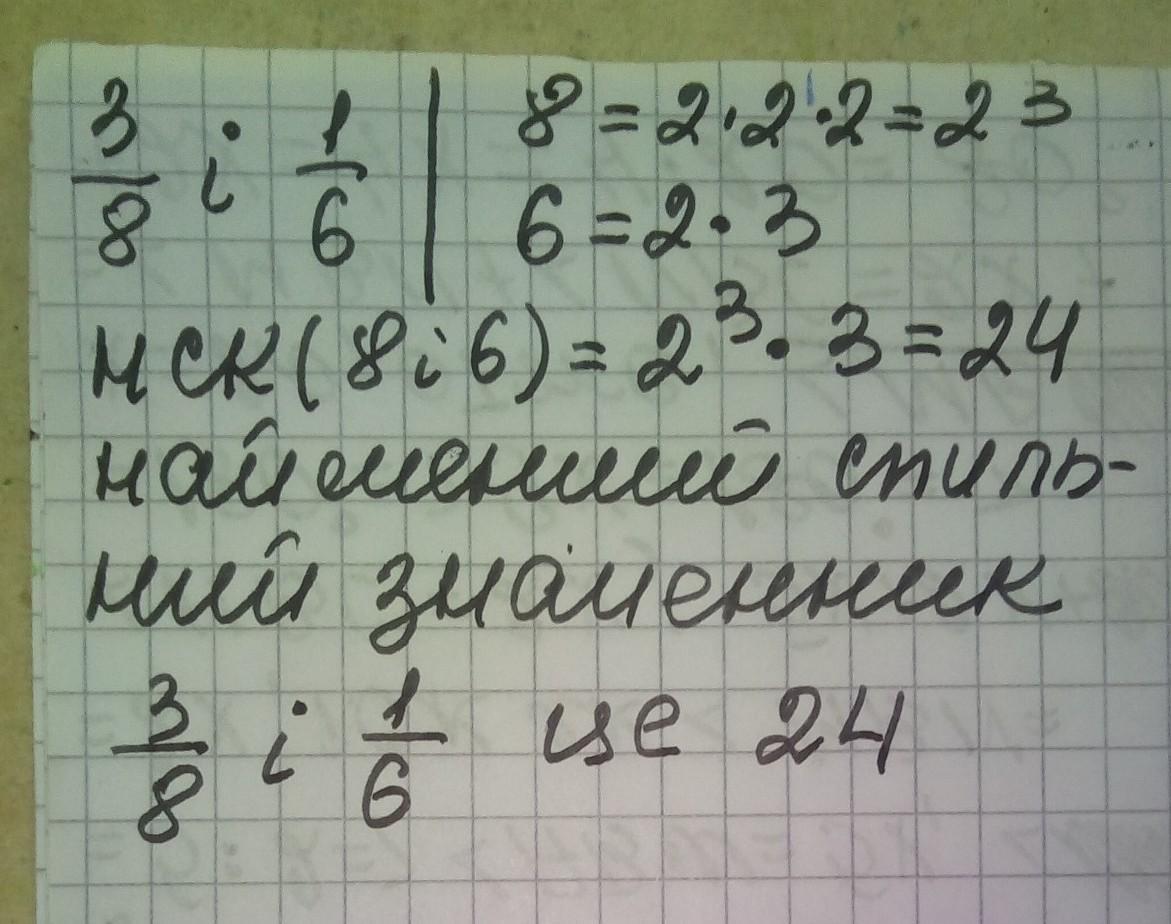 3/8 і 1/6 | 8 = 2·2·2 = 2³
6 = 2·3
нск(8 і 6) = 2³·3 = 24
найменший спиль-
ний знаменник
3/8 і 1/6 це 24